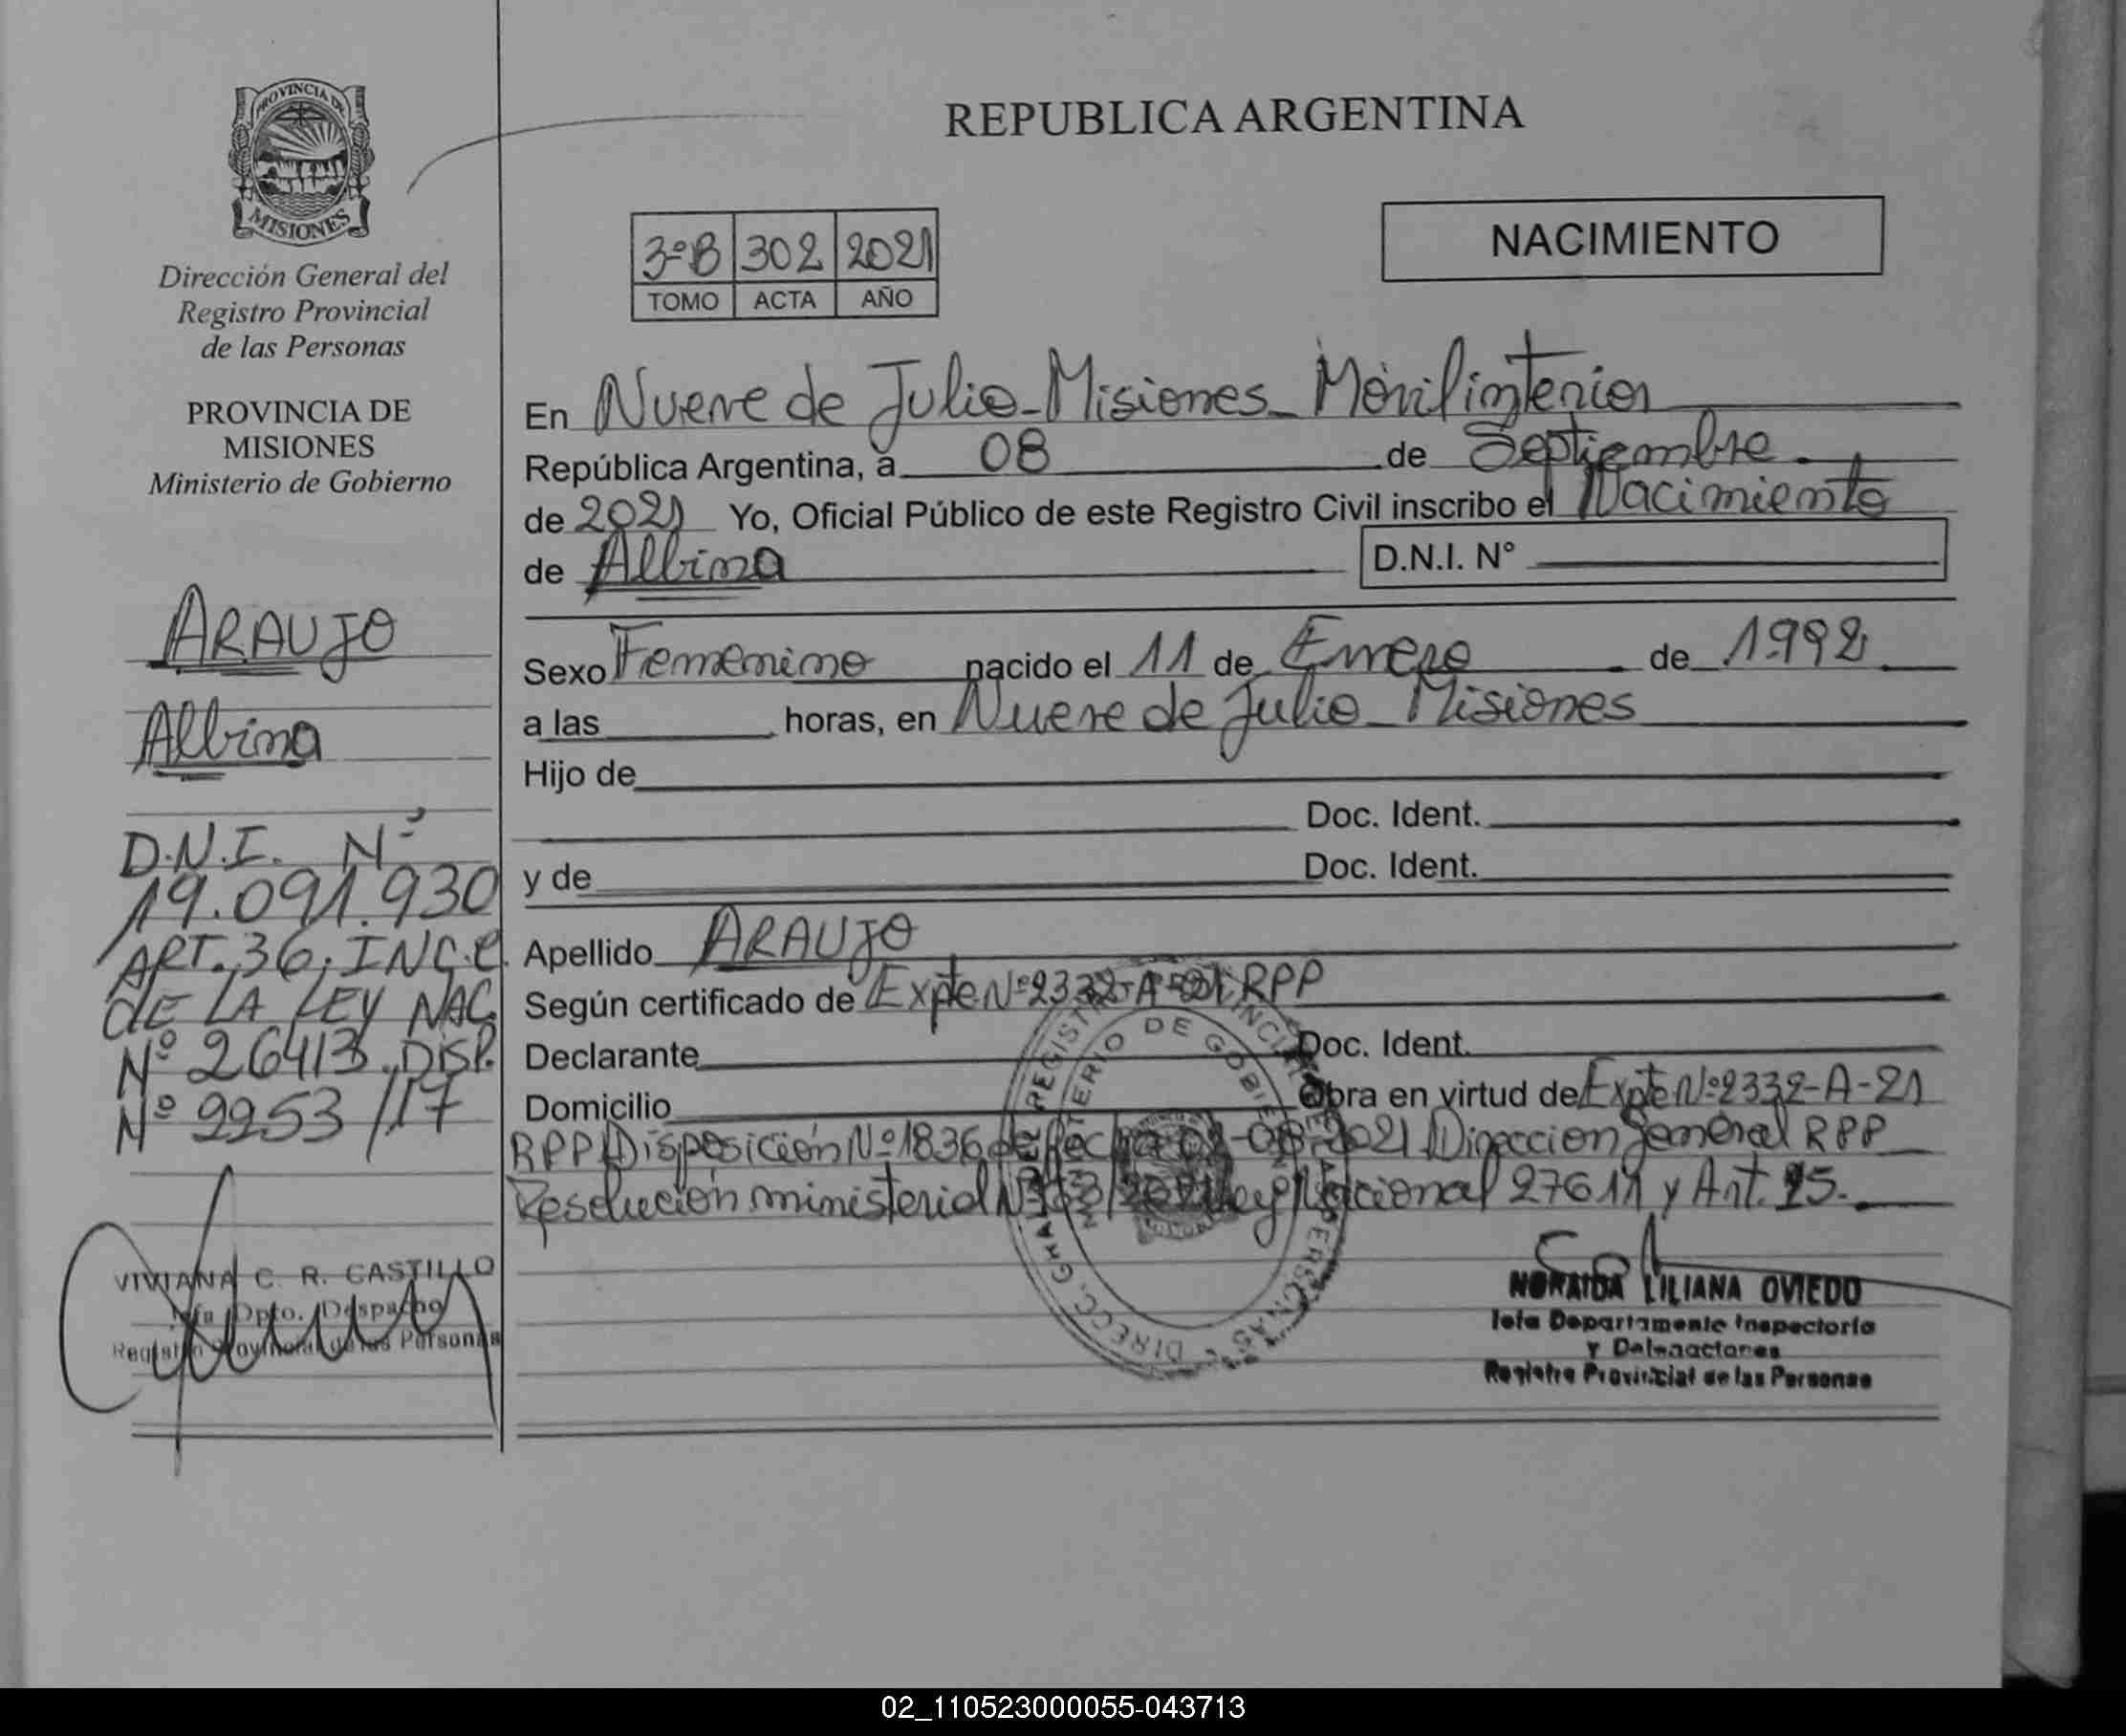 PROVINCIA DE
MISIONES
Dirección General del
Registro Provincial
de las Personas
PROVINCIA DE
MISIONES
Ministerio de Gobierno
ARAUJO
Albina
D.N.I. Nº
19.091.930
ART. 36, INC. C
DE LA LEY NAC
Nº 26413. DISP.
Nº 2253/17
VIVIANA C. R. CASTILLO
Jefa Dpto. Despacho
Registro Provincial de las Personas
REPUBLICA ARGENTINA
3ºB 302 2021
TOMO ACTA AÑO
NACIMIENTO
En Nueve de Julio - Misiones - Móvil interior
República Argentina, a 08 de Septiembre
de 2021 Yo, Oficial Público de este Registro Civil inscribo el Nacimiento
de Albina D.N.I. N°
Sexo Femenino nacido el 11 de Enero de 1.992
a las horas, en Nueve de Julio - Misiones
Hijo de
Doc. Ident.
y de Doc. Ident.
Apellido ARAUJO
Según certificado de Expte Nº 2332-A-21 RPP
Declarante Doc. Ident.
Domicilio Obra en virtud de Expte Nº 2332-A-21
RPP Disposición Nº 1836 de fecha 2021 Direccion General RPP
Resolución ministerial Ley Nacional 27611 y Art. 25.
DE GOBIE
DIRECC. GRAL
NORAIDA LILIANA OVIEDO
Jefa Departamento Inspectoría
y Delegaciones
Registro Provincial de las Personas
02_110523000055-043713